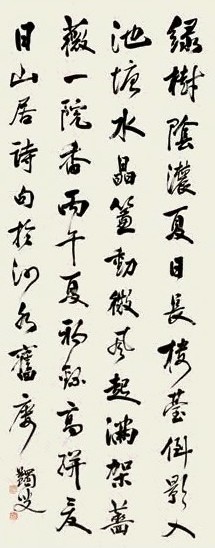 綠樹陰濃夏日長樓臺倒影入
池塘水晶簾動微風起滿架薔
薇一院香丙午夏初錄高駢夏
日山居詩句於舊廬
蠲叟